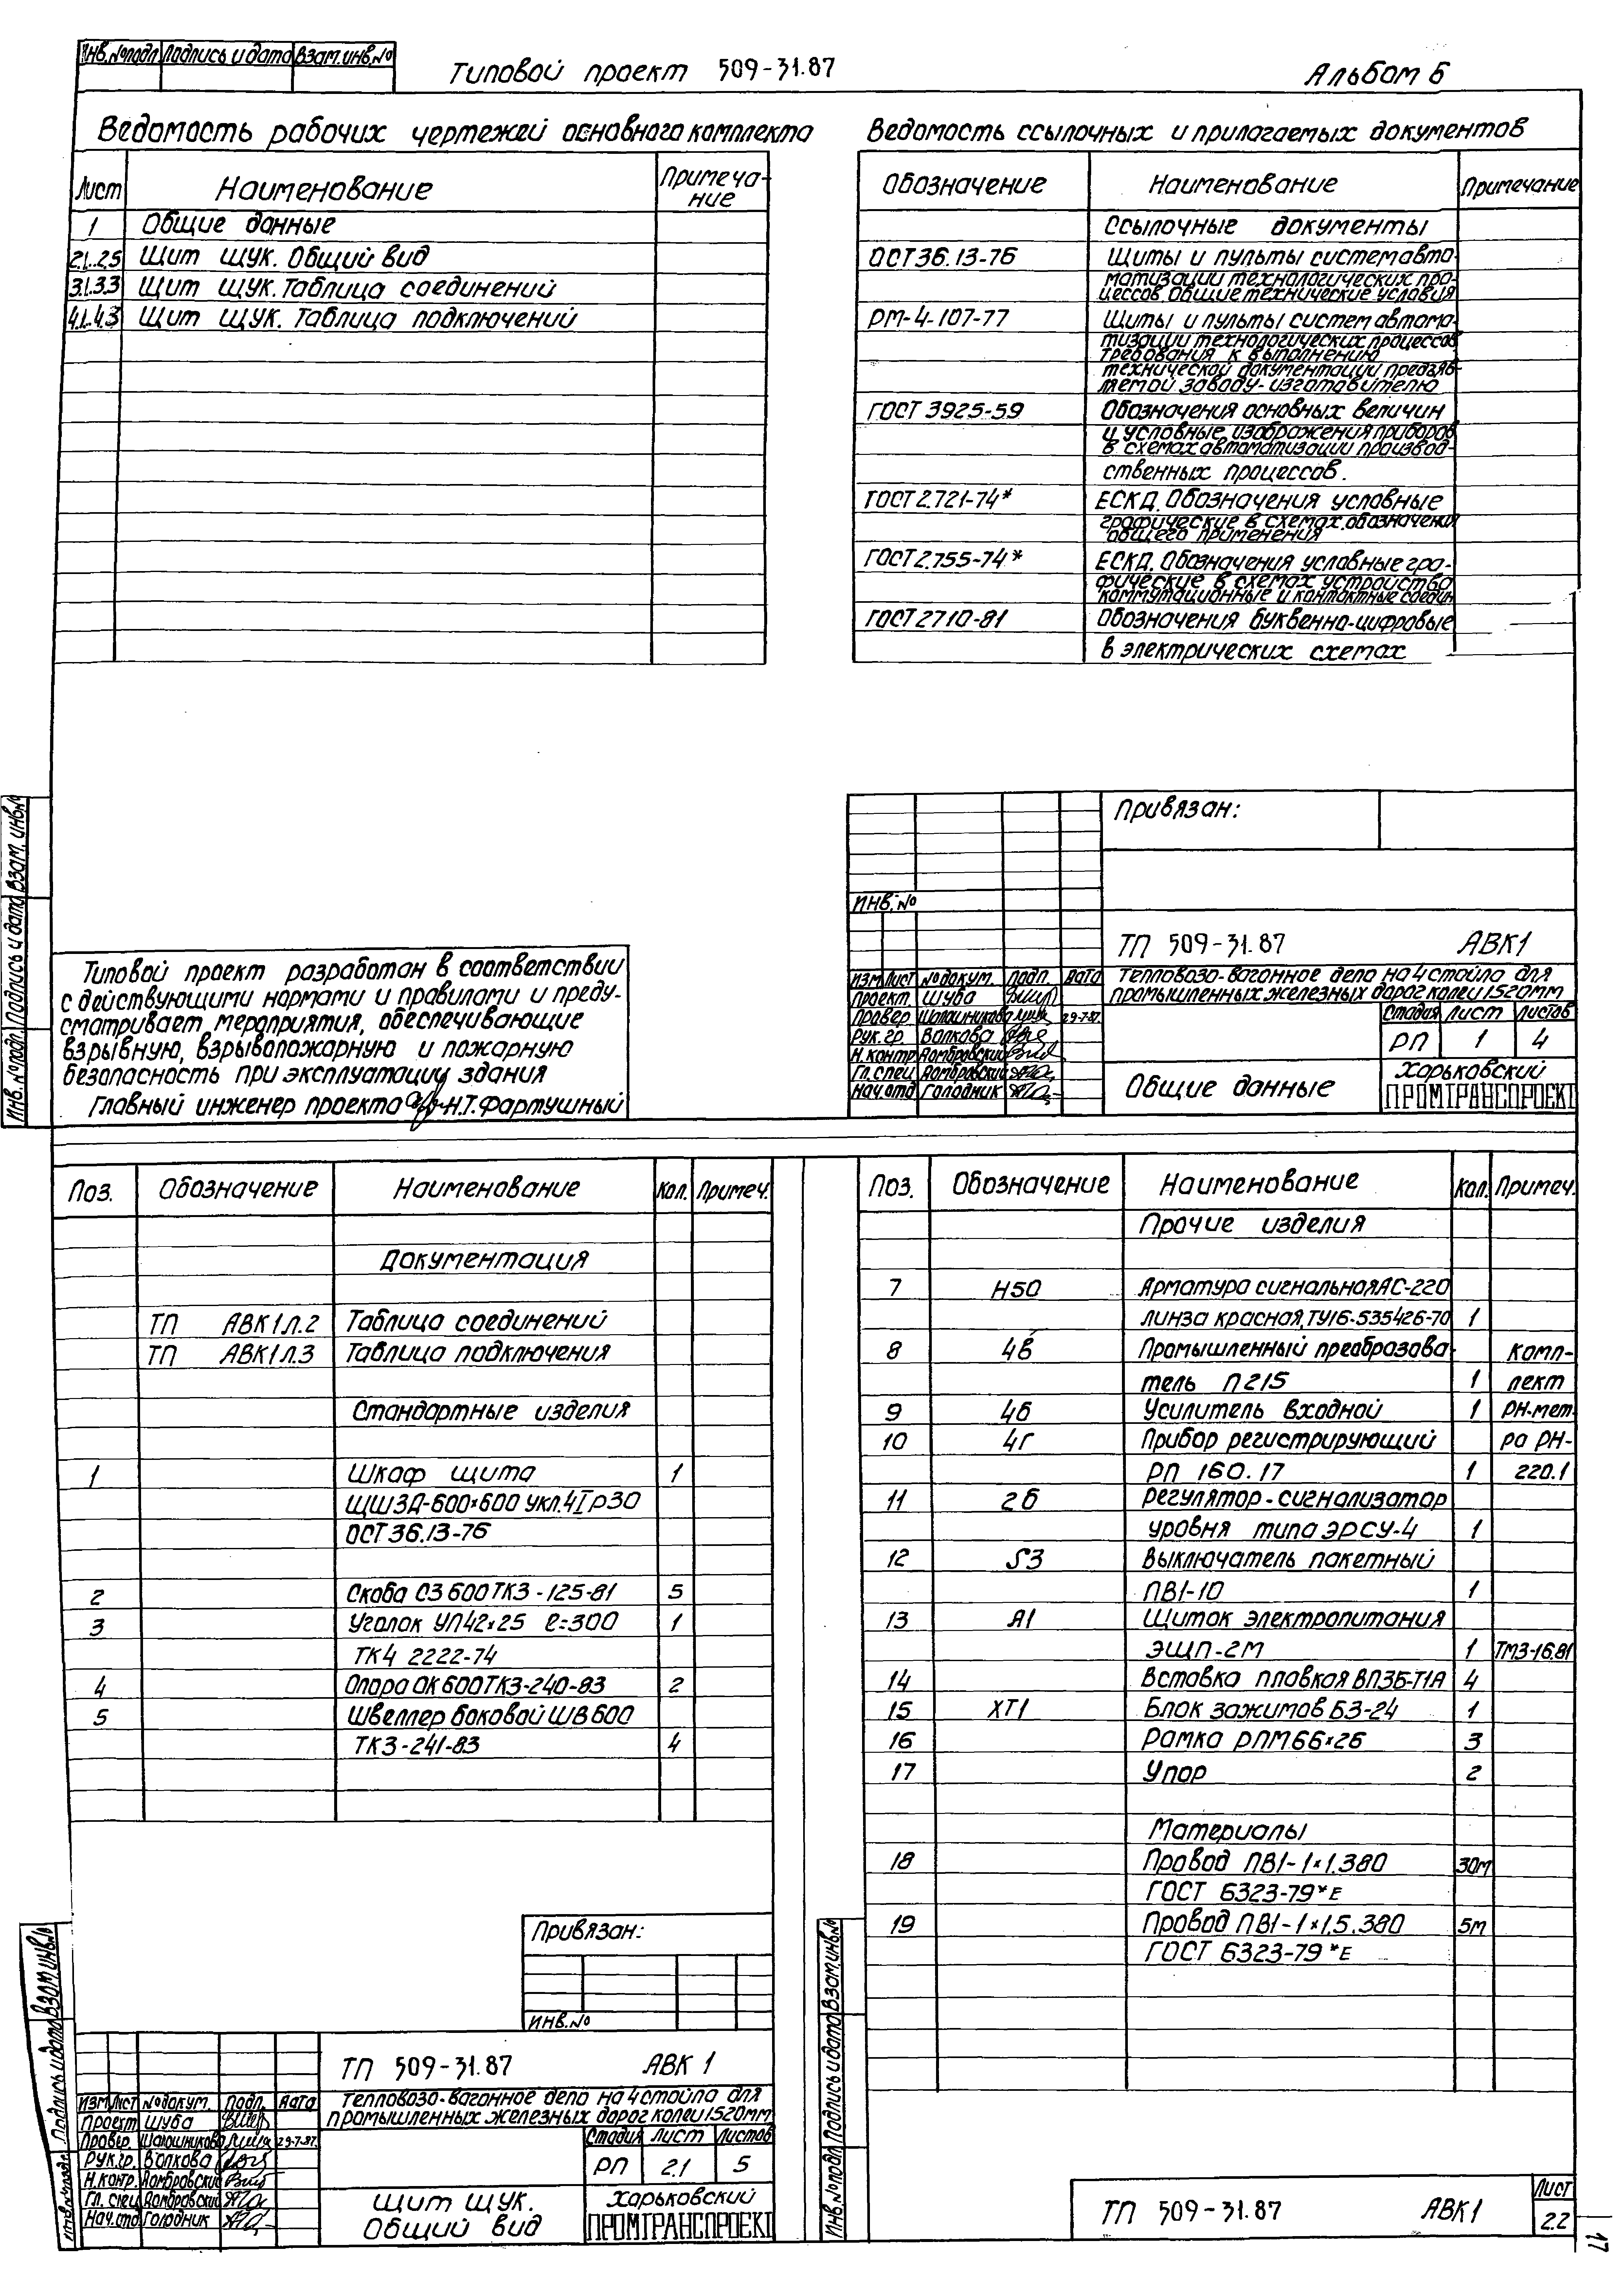 Инв.№подл. Подпись и дата Взам.инв.№
Типовой проект 509-31.87
Альбом 6
Ведомость рабочих чертежей основного комплекта
Лист Наименование Примеча-
ние
1 Общие данные
2.1..2.5 Щит ЩУК. Общий вид
3.1..3.3 Щит ЩУК. Таблица соединений
4.1..4.3 Щит ЩУК. Таблица подключений
Ведомость ссылочных и прилагаемых документов
Обозначение Наименование Примечание
Ссылочные документы
ОСТ 36.13-76 Щиты и пульты систем авто-
матизации технологических про-
цессов. Общие технические условия
РМ-4-107-77 Щиты и пульты систем автома-
тизации технологических процессов
требования к выполнению
технической документации предъяв-
ляемой заводу-изготовителю
ГОСТ 3925-59 Обозначения основных величин
и условные изображения приборов
в схемах автоматизации производ-
ственных процессов.
ГОСТ 2.721-74* ЕСКД. Обозначения условные
графические в схемах. обозначения
общего применения
ГОСТ 2.755-74* ЕСКД. Обозначения условные гра-
фические в схемах устройства
коммутационные и контактные соедин
ГОСТ 2710-81 Обозначения буквенно-цифровые
в электрических схемах
Инв.№подл. Подпись и дата Взам.инв№
Типовой проект разработан в соответствии
с действующими нормами и правилами и преду-
сматривает мероприятия, обеспечивающие
взрывную, взрывопожарную и пожарную
безопасность при эксплуатации здания
Главный инженер проекта Н.Т.Фартушный
Привязан:
Инв.№
ТП 509-31.87 АВК1
Изм Лист №докум. Подп. Дата
Проект. Шуба
Провер. Шапошникова 29.7.87.
Рук.гр. Волкова
Н.контр Домбровский
Гл.спец Домбровский
Нач.отд Голодник
Тепловозо-вагонное депо на 4 стойла для
промышленных железных дорог колеи 1520мм
Стадия Лист Листов
РП 1 4
Общие данные
Харьковский
ПРОМТРАНСПРОЕКТ
Поз. Обозначение Наименование Кол. Примеч.
Документация
ТП АВК1л.2 Таблица соединений
ТП АВК1л.3 Таблица подключения
Стандартные изделия
1 Шкаф щита 1
ЩШЗД-600×600 укл.4 I Р30
ОСТ 36.13-76
2 Скоба С3 600 ТК3-125-81 5
3 Уголок УП42×25 ℓ=300 1
ТК4 2222-74
4 Опора ОК 600 ТК3-240-83 2
5 Швеллер боковой ШВ 600
ТК3-241-83 4
Привязан:
Инв.№
ТП 509-31.87 АВК 1
Изм Лист №докум. Подп. Дата
Проект Шуба
Провер. Шапошникова 29.7.87.
Рук.гр. Волкова
Н.контр. Домбровский
Гл. спец Домбровский
Нач.отд Голодник
Тепловозо-вагонное депо на 4 стойла для
промышленных железных дорог колеи 1520мм
Стадия Лист Листов
РП 2.1 5
Щит ЩУК.
Общий вид
Харьковский
ПРОМТРАНСПРОЕКТ
Подпись и дата Взам.инв.№
Поз. Обозначение Наименование Кол. Примеч.
Прочие изделия
7 Н50 Арматура сигнальная АС-220
линза красная, ТУ16-535426-70 1
8 4в Промышленный преобразова- Комп-
тель П215 1 лект
9 4б Усилитель входной 1 рН-мет
10 4г Прибор регистрирующий ра рН-
РП 160.17 1 220.1
11 2б Регулятор-сигнализатор
уровня типа ЭРСУ-4 1
12 S3 Выключатель пакетный
ПВ1-10 1
13 А1 Щиток электропитания
ЭЩП-2М 1 ТМ3-16.81
14 Вставка плавкая ВП3Б-Т1А 4
15 ХТ1 Блок зажимов БЗ-24 1
16 Рамка РПМ 66×26 3
17 Упор 2
Материалы
18 Провод ПВ1-1×1.380 30м
ГОСТ 6323-79*Е
19 Провод ПВ1-1×1,5.380 5м
ГОСТ 6323-79*Е
Инв.№подл. Подпись и дата Взам.инв№
ТП 509-31.87 АВК1
Лист
2.2
17